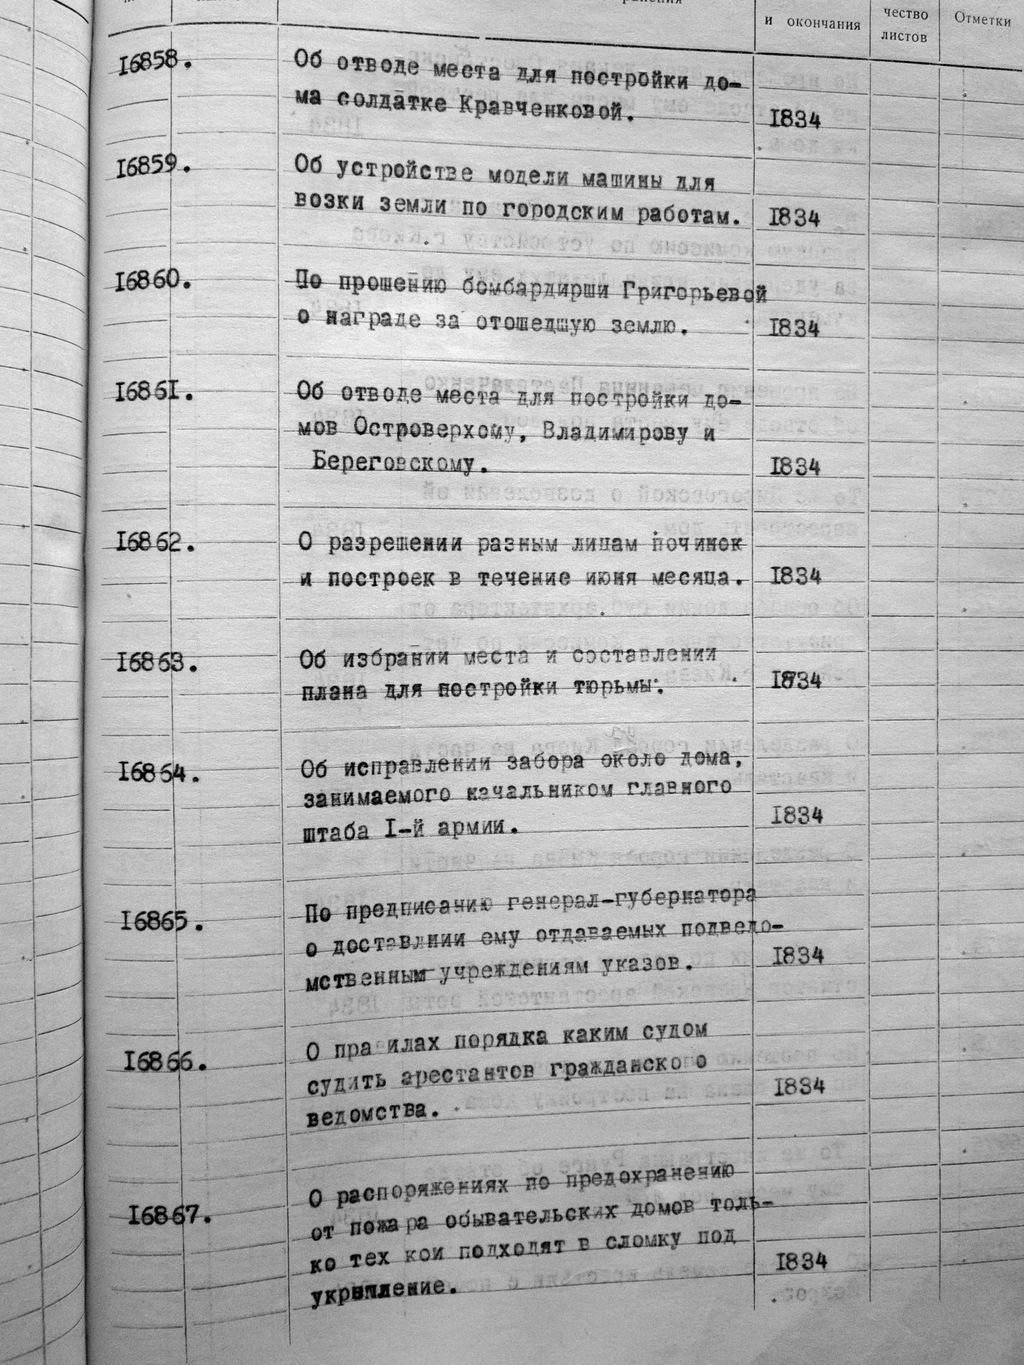 и окончания
чество
листов
Отметки
16858.
Об отводе места для постройки до-
ма солдатке Кравченковой.
1834
16859.
Об устройстве модели машины для
возки земли по городским работам.
1834
16860.
По прошению бомбардирши Григорьевой
о награде за отошедшую землю.
1834
16861.
Об отводе места для постройки до-
мов Островерхому, Владимирову и
Береговскому.
1834
16862.
О разрешении разным лицам починок
и построек в течение июня месяца.
1834
16863.
Об избрании места и составлении
плана для постройки тюрьмы.
1834
16864.
Об исправлении забора около дома,
занимаемого начальником главного
штаба I-й армии.
1834
16865.
По предписанию генерал-губернатора
о доставлнии ему отдаваемых подведо-
мственным учреждениям указов.
1834
16866.
О правилах порядка каким судом
судить арестантов гражданского
ведомства.
1834
16867.
О распоряжениях по предохранению
от пожара обывательских домов толь-
ко тех кои подходят в сломку под
укрепление.
1834